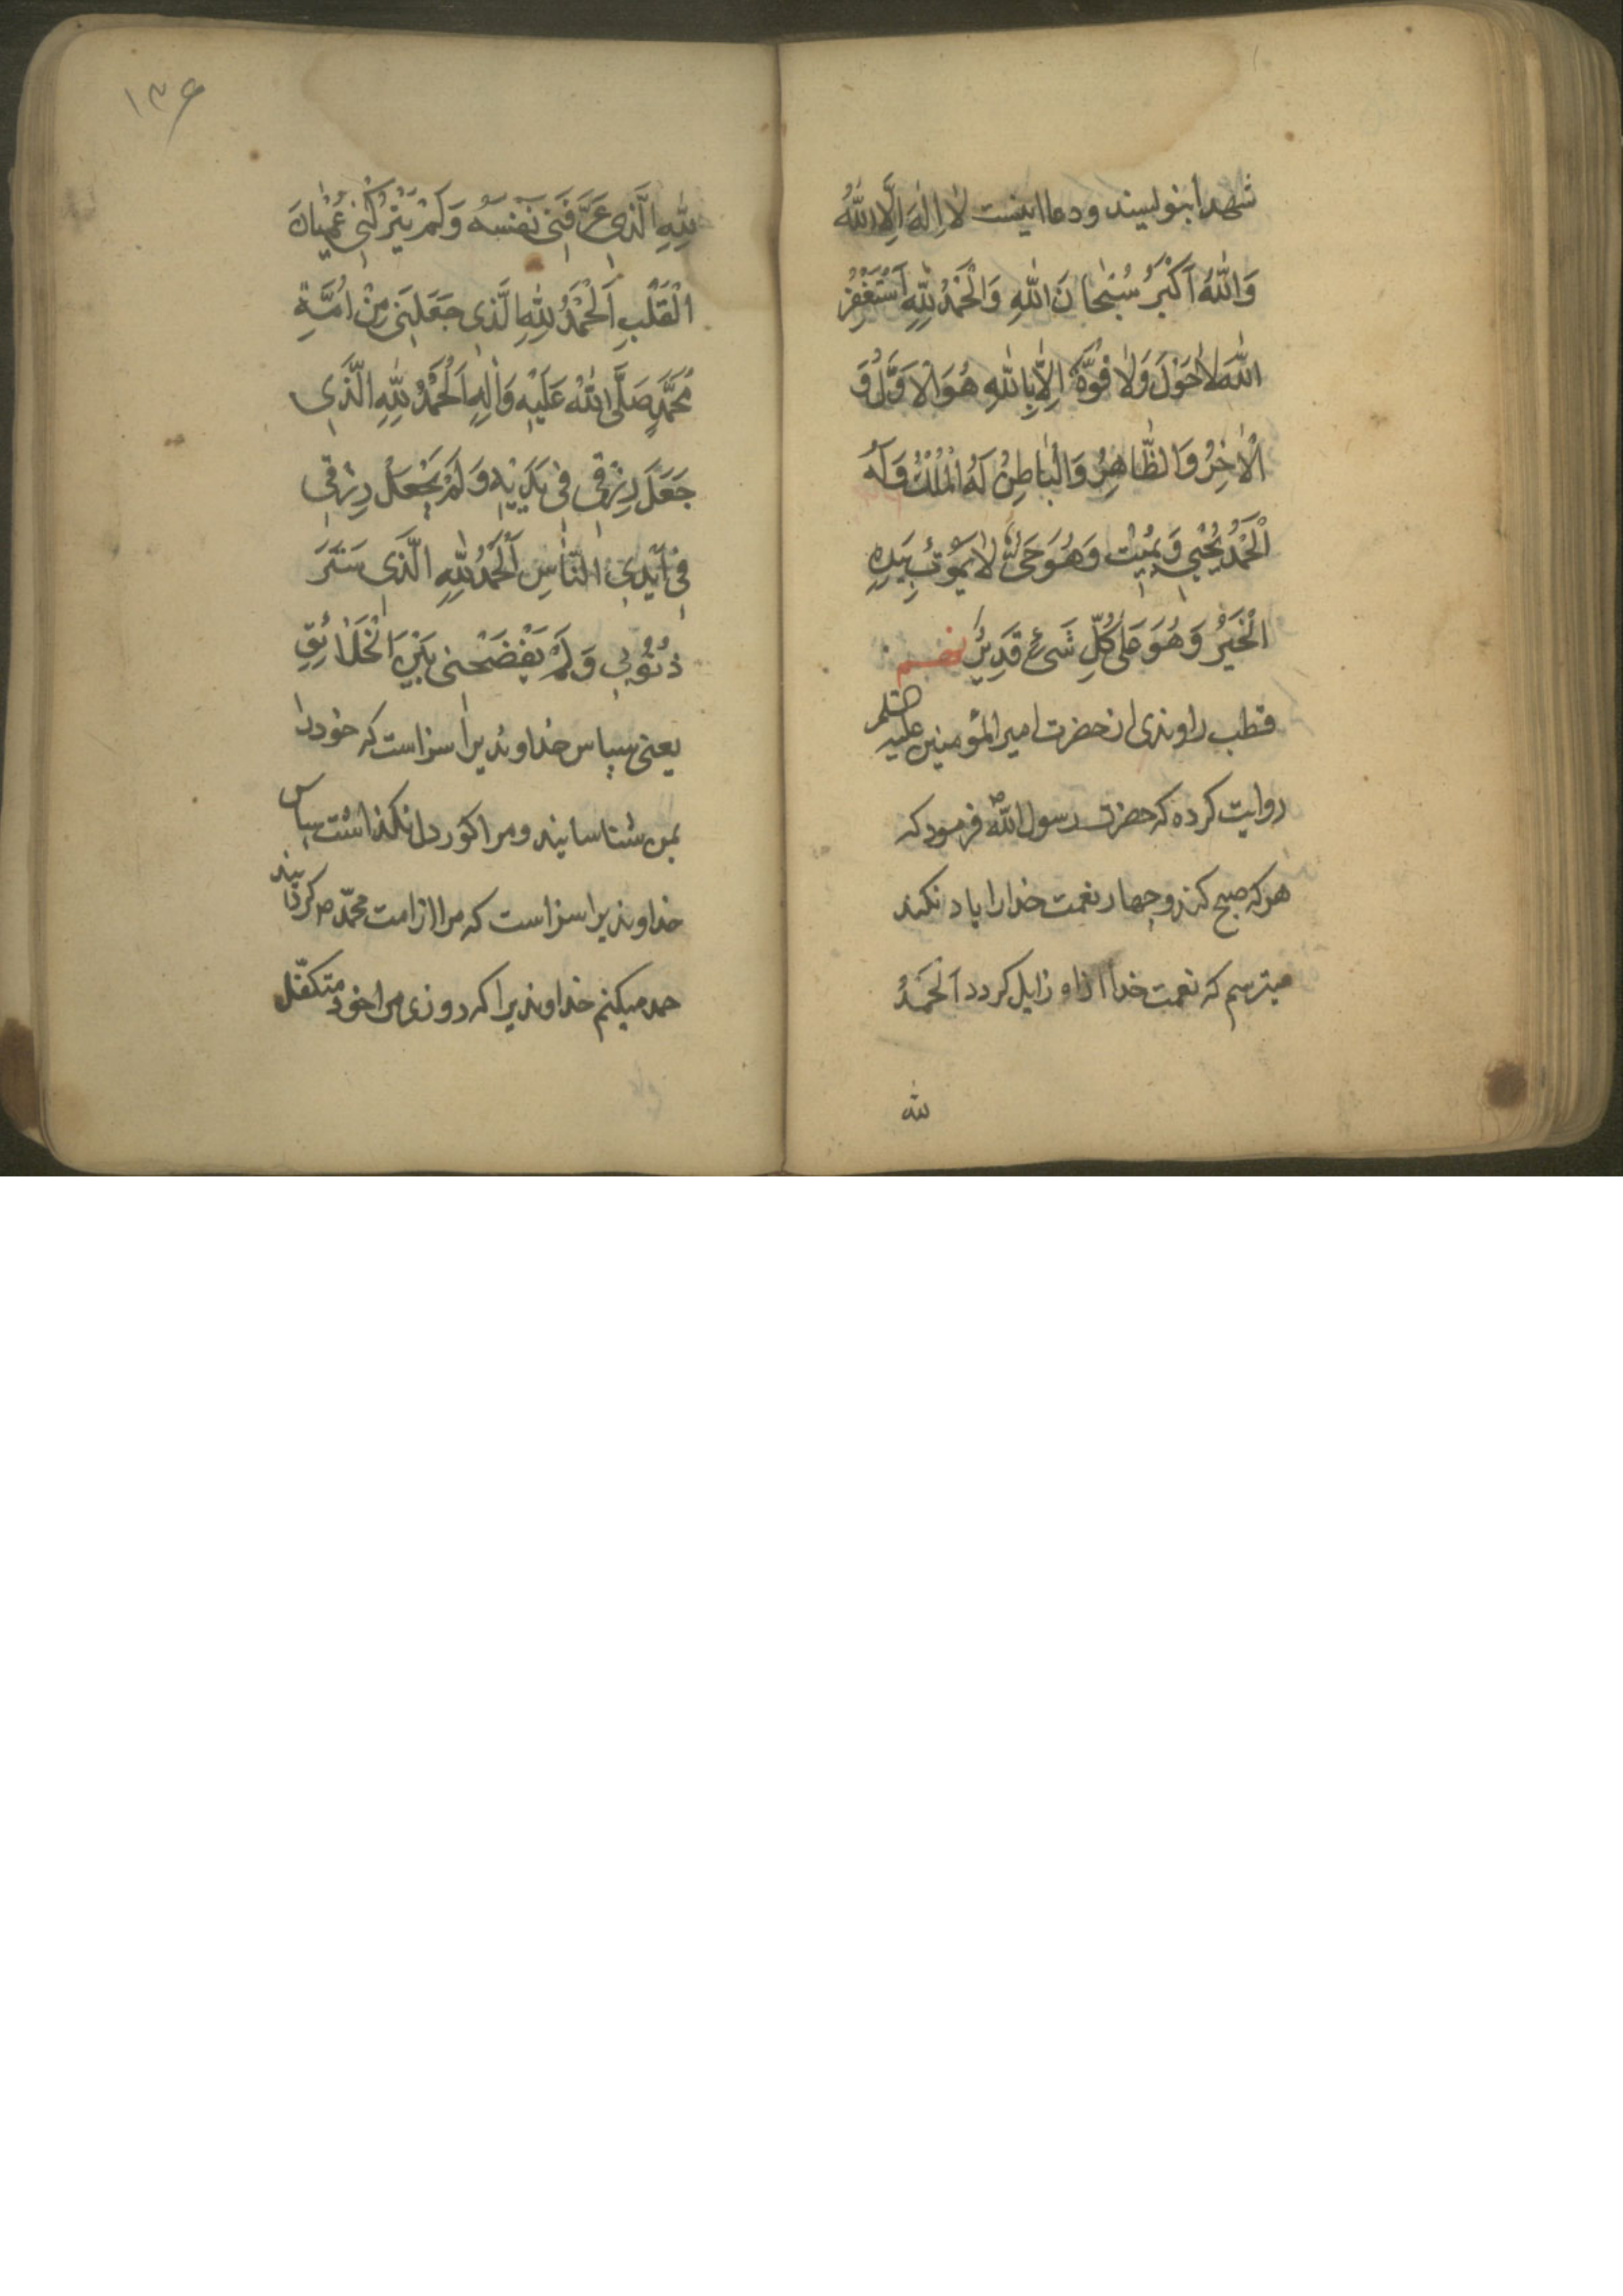 شهدا بنویسند و دعا اینست لٰا اِلٰهَ اِلَّا اللّٰهُ
وَاللّٰهُ اَكْبَرُ سُبْحٰانَ اللّٰهِ وَالْحَمْدُ لِلّٰهِ اَسْتَغْفِرُ
اللّٰهَ لٰا حَوْلَ وَلٰا قُوَّةَ اِلّٰا بِاللّٰهِ هُوَ الْاَوَّلُ وَ
الْاٰخِرُ وَالظّٰاهِرُ وَالْبٰاطِنُ لَهُ الْمُلْكُ وَلَهُ
الْحَمْدُ يُحْيِي وَيُمِيتُ وَهُوَ حَىٌّ لٰا يَمُوتُ بِيَدِهِ
الْخَيْرُ وَهُوَ عَلٰى كُلِّ شَىْءٍ قَدِيرٌ
قطب راوندی از حضرت امیر المؤمنین علیه السلم
روایت کرده که حضرت رسول اللّٰه ص فرمود که
هر که صبح کند و چهار نعمت خدا را یاد نکند
میترسم که نعمت خدا از او زایل کردد اَلْحَمْدُ
لله
۱۳۶
لِلّٰهِ الَّذِي عَرَّفَنِي نَفْسَهُ وَلَمْ يَتْرُكْنِي عُمْيٰانَ
الْقَلْبِ اَلْحَمْدُ لِلّٰهِ الَّذِي جَعَلَنِي مِنْ اُمَّةِ
مُحَمَّدٍ صَلَّى اللّٰهُ عَلَيْهِ وَاٰلِهِ اَلْحَمْدُ لِلّٰهِ الَّذِي
جَعَلَ رِزْقِي فِي يَدَيْهِ وَلَمْ يَجْعَلْ رِزْقِي
فِي اَيْدِي النّٰاسِ اَلْحَمْدُ لِلّٰهِ الَّذِي سَتَرَ
ذُنُوبِي وَلَمْ يَفْضَحْنِي بَيْنَ الْخَلٰائِقِ
یعنی سپاس خداوندیرا سزاست که خود را
بمن شناسانید و مرا کور دل نکذاشت سپاس
خداوندیرا سزاست که مرا از امت محمّد ص کردانید
حمد میکنم خداوندیرا که روزی مرا خود متکفّل